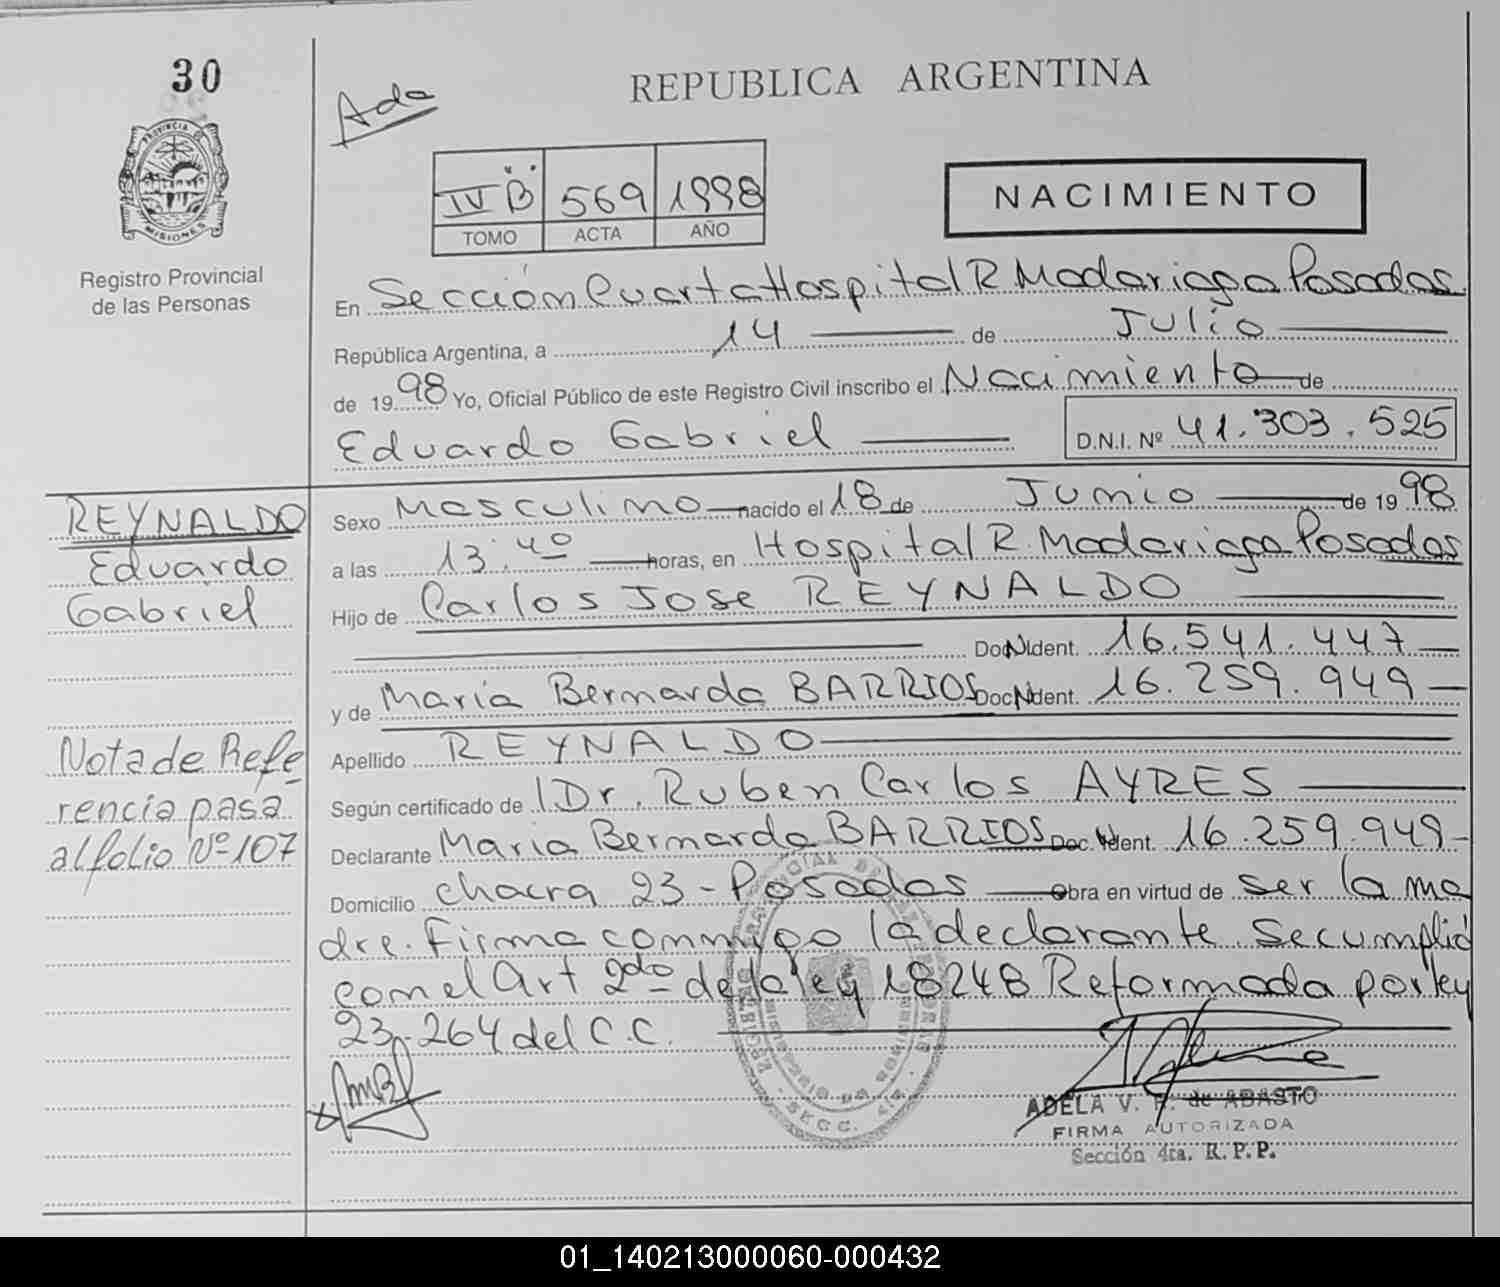 30
Ada
REPUBLICA ARGENTINA
PROVINCIA DE
MISIONES
Registro Provincial
de las Personas
IV "B" 569 1998
TOMO ACTA AÑO
NACIMIENTO
En Sección Cuarta Hospital R Madariaga Posadas
República Argentina, a 14 de Julio
de 1998 Yo, Oficial Público de este Registro Civil inscribo el Nacimiento de
Eduardo Gabriel D.N.I. Nº 41.303.525
REYNALDO
Eduardo
Gabriel
Nota de Refe
rencia pasa
al folio Nº 107
Sexo Masculino nacido el 18 de Junio de 1998
a las 13.40 horas, en Hospital R. Madariaga Posadas
Hijo de Carlos Jose REYNALDO
Doc N Ident. 16.541.447
y de Maria Bernarda BARRIOS Doc N Ident. 16.259.949
Apellido REYNALDO
Según certificado de 1 Dr. Ruben Carlos AYRES
Declarante Maria Bernarda BARRIOS Doc. N Ident. 16.259.949
Domicilio chacra 23 - Posadas obra en virtud de ser la ma
dre. Firma conmigo la declarante. Se cumplió
con el Art 2do de la ley 18248 Reformada por ley
23.264 del C.C.
ADELA V. F. de ABASTO
FIRMA AUTORIZADA
Sección 4ta. R.P.P.
01_140213000060-000432